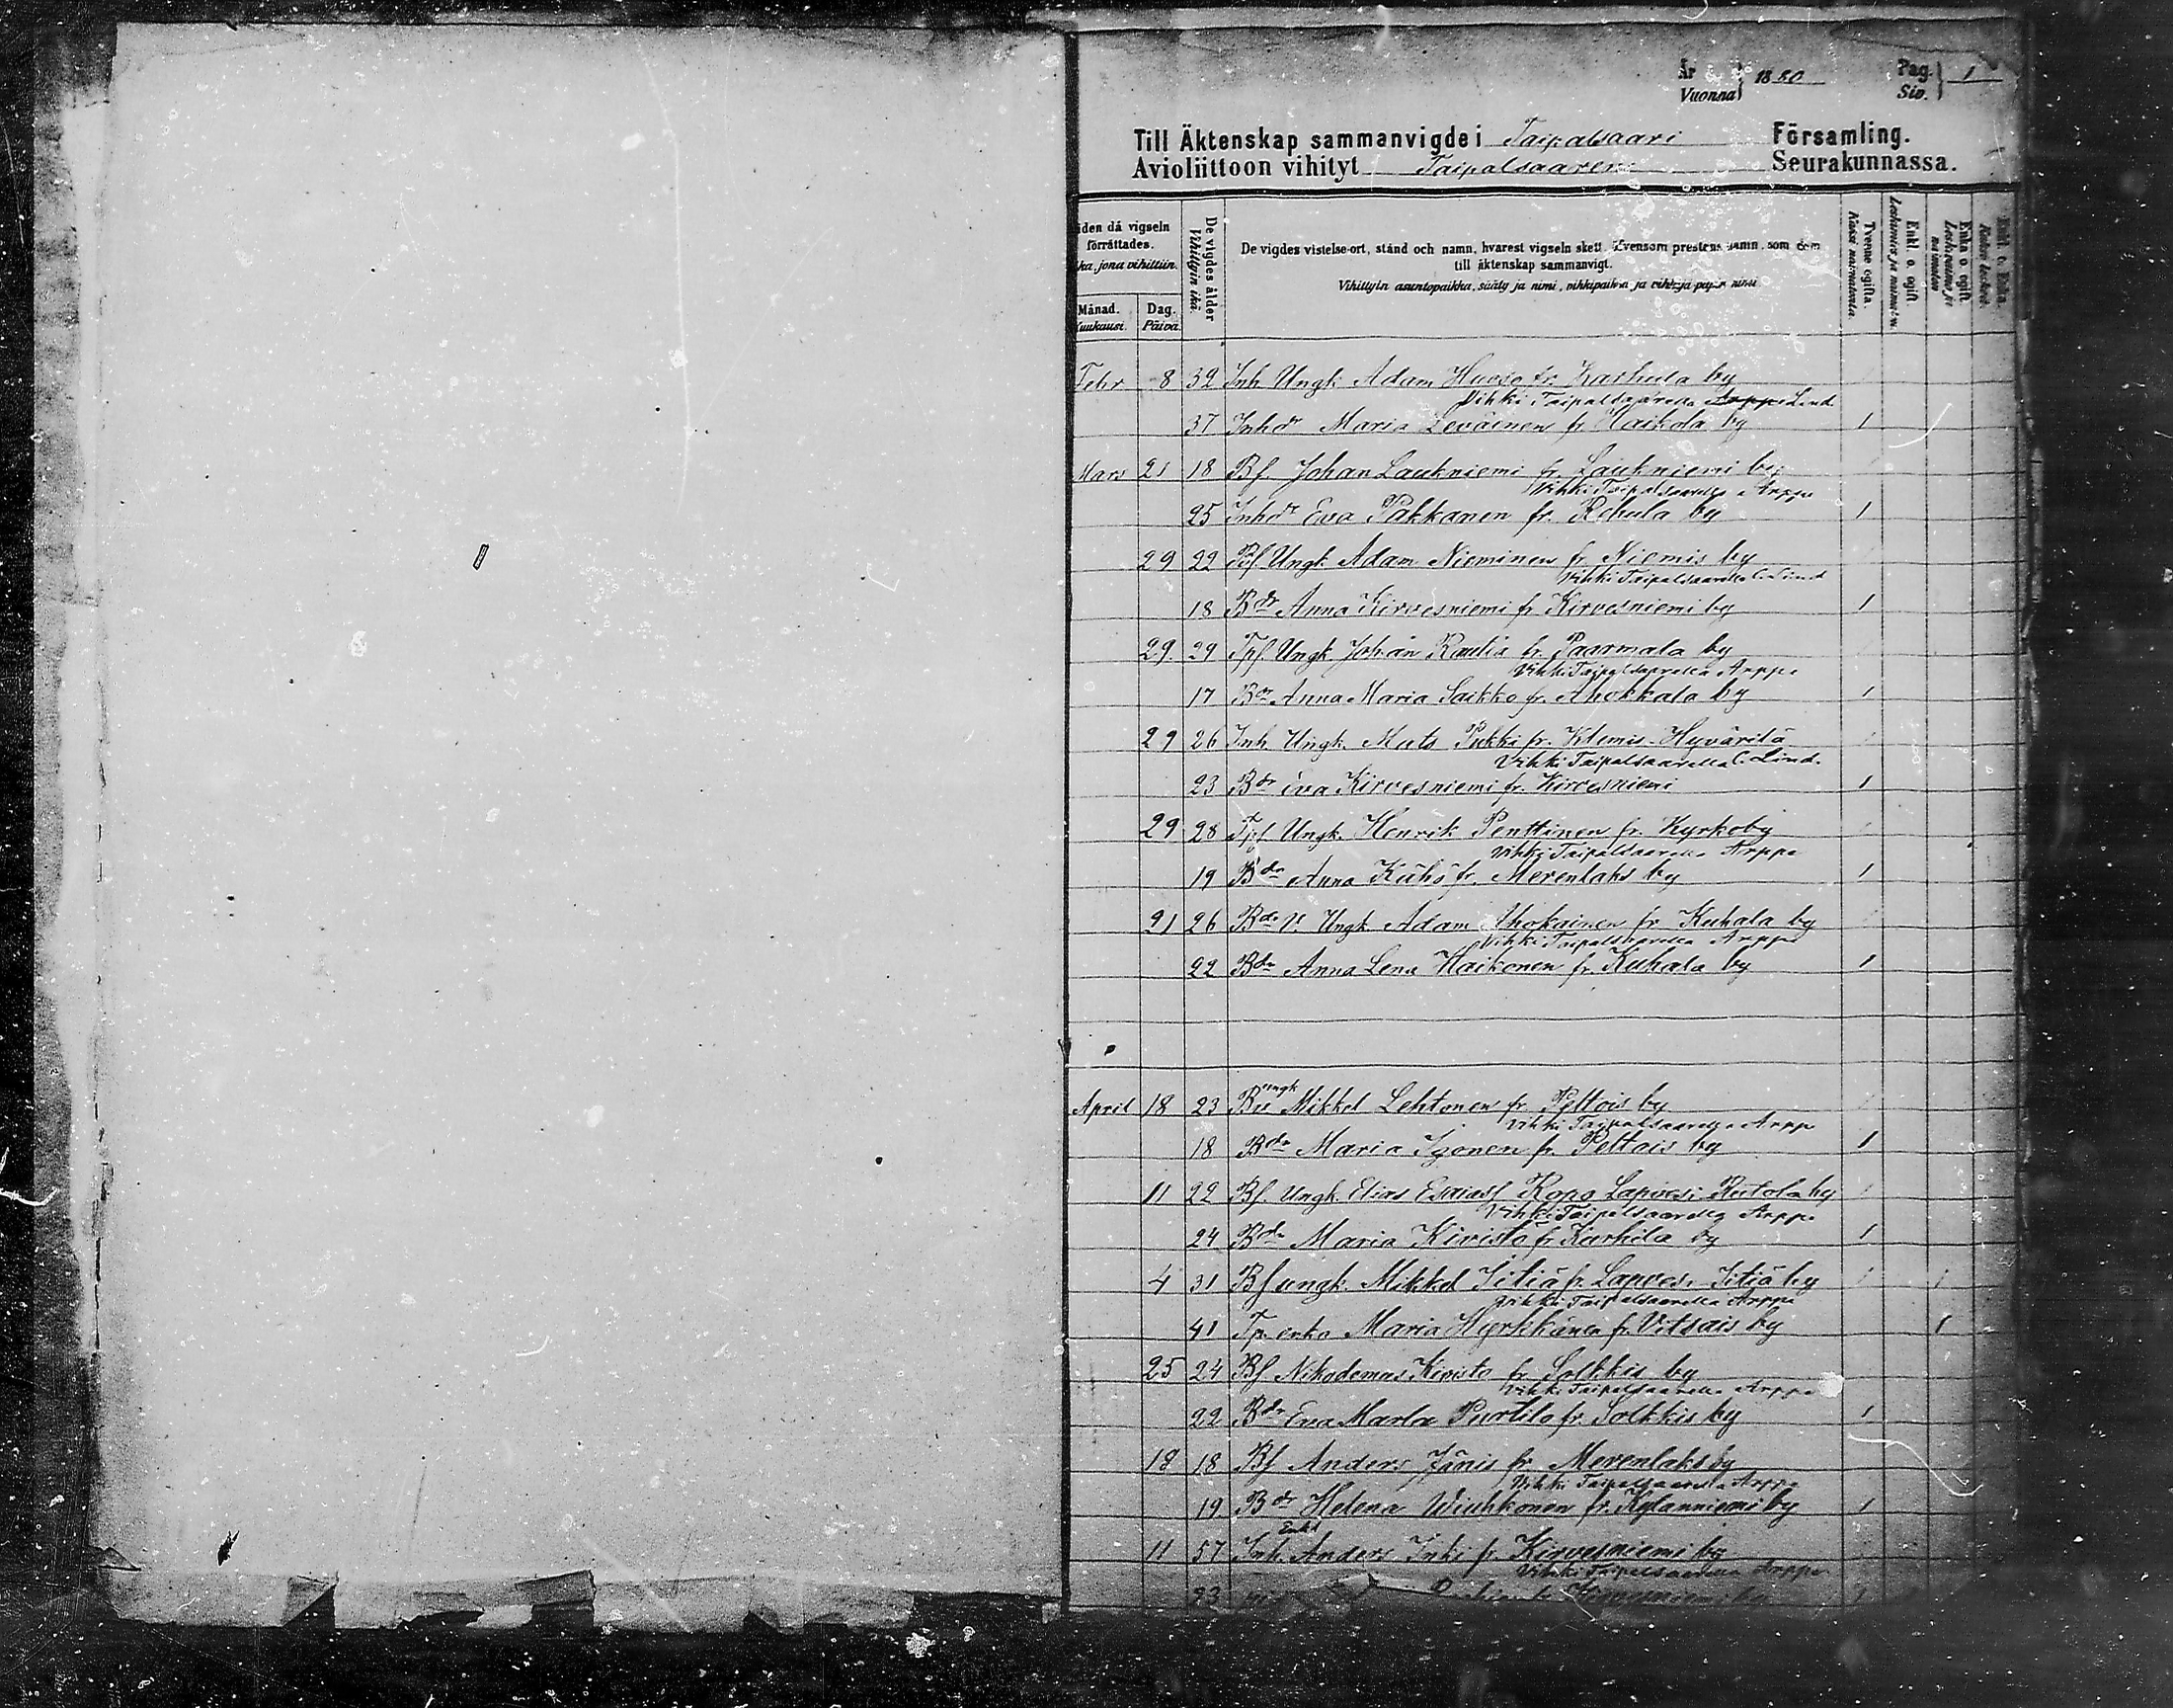 År Vuonna 1880 Pag. Siv. 1
Till Äktenskap sammanvigde i Taipalsaari Församling.
Avioliittoon vihityt Taipalsaaren Seurakunnassa.
iden då vigseln förrättades.
ka, jona vihittiin.
Månad. Kuukausi.
Dag. Päivä.
De vigdes ålder
Vihittyin ikä.
De vigdes vistelse-ort, stånd och namn, hvarest vigseln skett, äfvensom prestens namn, som dem
till äktenskap sammanvigt.
Vihittyin asuntopaikka, sääty ja nimi, vihkipaikka ja vihkijä papin nimi
Tvenne ogifta.
Kaksi naimatonta.
Enkl. o. ogift
Leskimies ja naimaton.
Enka o. ogift
Leskivaimo ja naimaton
Enkl. o. Enka.
Febr 8 32 Inh. Ungk. Adam fr. Karhula by
Vihki Taipalsaarella Arppe Lind.
37 Inhdr Maria Leväinen fr. Haikola by 1
Mars 21 18 Bf. Johan Laukniemi fr. Laukniemi by
Vihki Taipalsaarella Arppe
25 Inhdr Eva Pakkanen fr. Rehula by 1
29 22 Bf. Ungk. Adam Nieminen fr. Niemis by
Vihki Taipalsaarella C. Lind
18 Bdr Anna Kirvesniemi fr. Kirvesniemi by 1
29. 29 Tpf. Ungk. Johan Rautia fr. Paarmala by
Vihki Taipalsaarella Arppe
17 Bdr Anna Maria Saikko fr. Ahokkala by 1
29 26 Inh. Ungk. Mats Pukki fr. Klemis-Hyvärilä
Vihki Taipalsaarella C. Lind.
23 Bdr Eva Kirvesniemi fr. Kirvesniemi 1
29 28 Tpf. Ungk. Henrik Penttinen fr. Kyrkoby
Vihki Taipalsaarella Arppe
19 Bdr Anna Kähö fr. Merenlaks by 1
21 26 Bdr V. Ungk. Adam Ahokainen fr. Kuhala by
Vihki Taipalsaarella Arppe
22 Bdr Anna Lena Haikonen fr. Kuhala by 1
April 18 23 ungk Mikkel Lehtonen fr. Peltois by
Vihki Taipalsaarella Arppe
18 Bdr Maria Izonen fr. Peltois by 1
11 22 Bf. Ungk. Elias Esaiasf Kopo Lapvesi by
Vihki Taipalsaarella Arppe
24 Bdr Maria Kivistö fr. Karhila by 1
4 31 Bf ungk. Mikkel Iitiä fr. Lapvesi Iitiä by
Vihki Taipalsaarella Arppe
41 Tp. enka Maria Hyrkkänen fr. Vitsais by 1
25 24 Bf Nikodemus Kivisto fr. Solkkis by
Vihki Taipalsaarella Arppe
22 Bdr Eva Maria Purtilo fr. Solkkis by 1
18 18 Bf Anders Jänis fr. Merenlaks by
Vihki Taipalsaarella Arppe
19. Bdr Helena Wiuhkonen fr. Kylänniemi by 1
11 57 Inh. Enkl Anders Inki fr. Kirvesniemi by
Vihki Taipalsaarella Arppe
23 fr. Kirvesniemi by 1